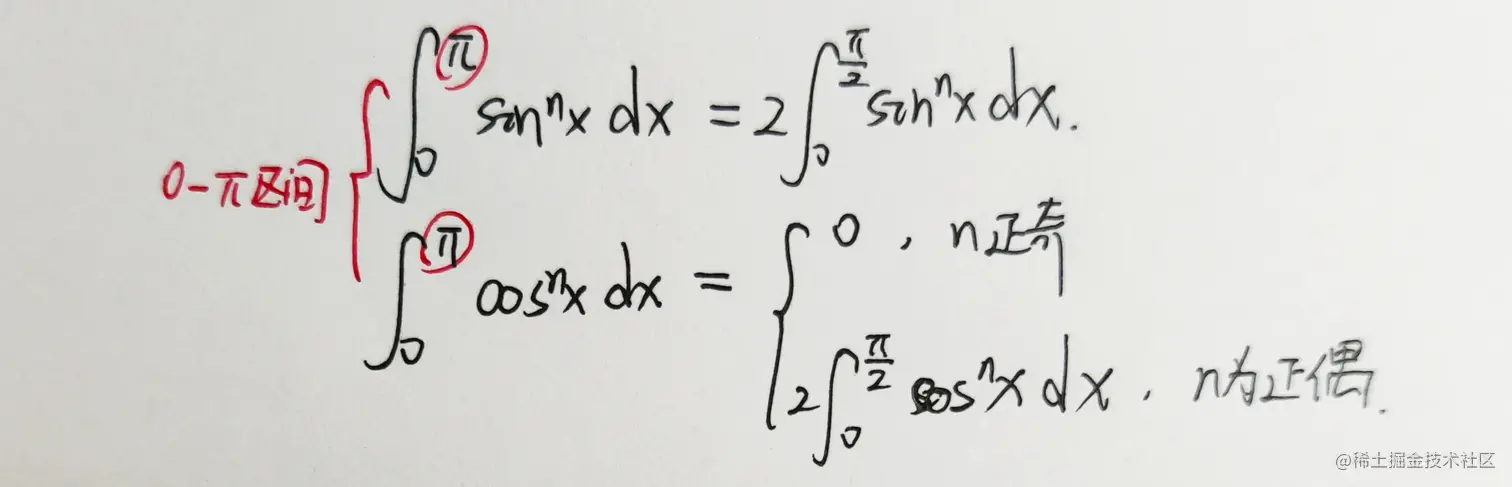 ∫₀^π sinⁿx dx = 2∫₀^(π/2) sinⁿx dx.
0-π区间
∫₀^π cosⁿx dx = { 0 , n正奇
2∫₀^(π/2) cosⁿx dx , n为正偶.
@稀土掘金技术社区